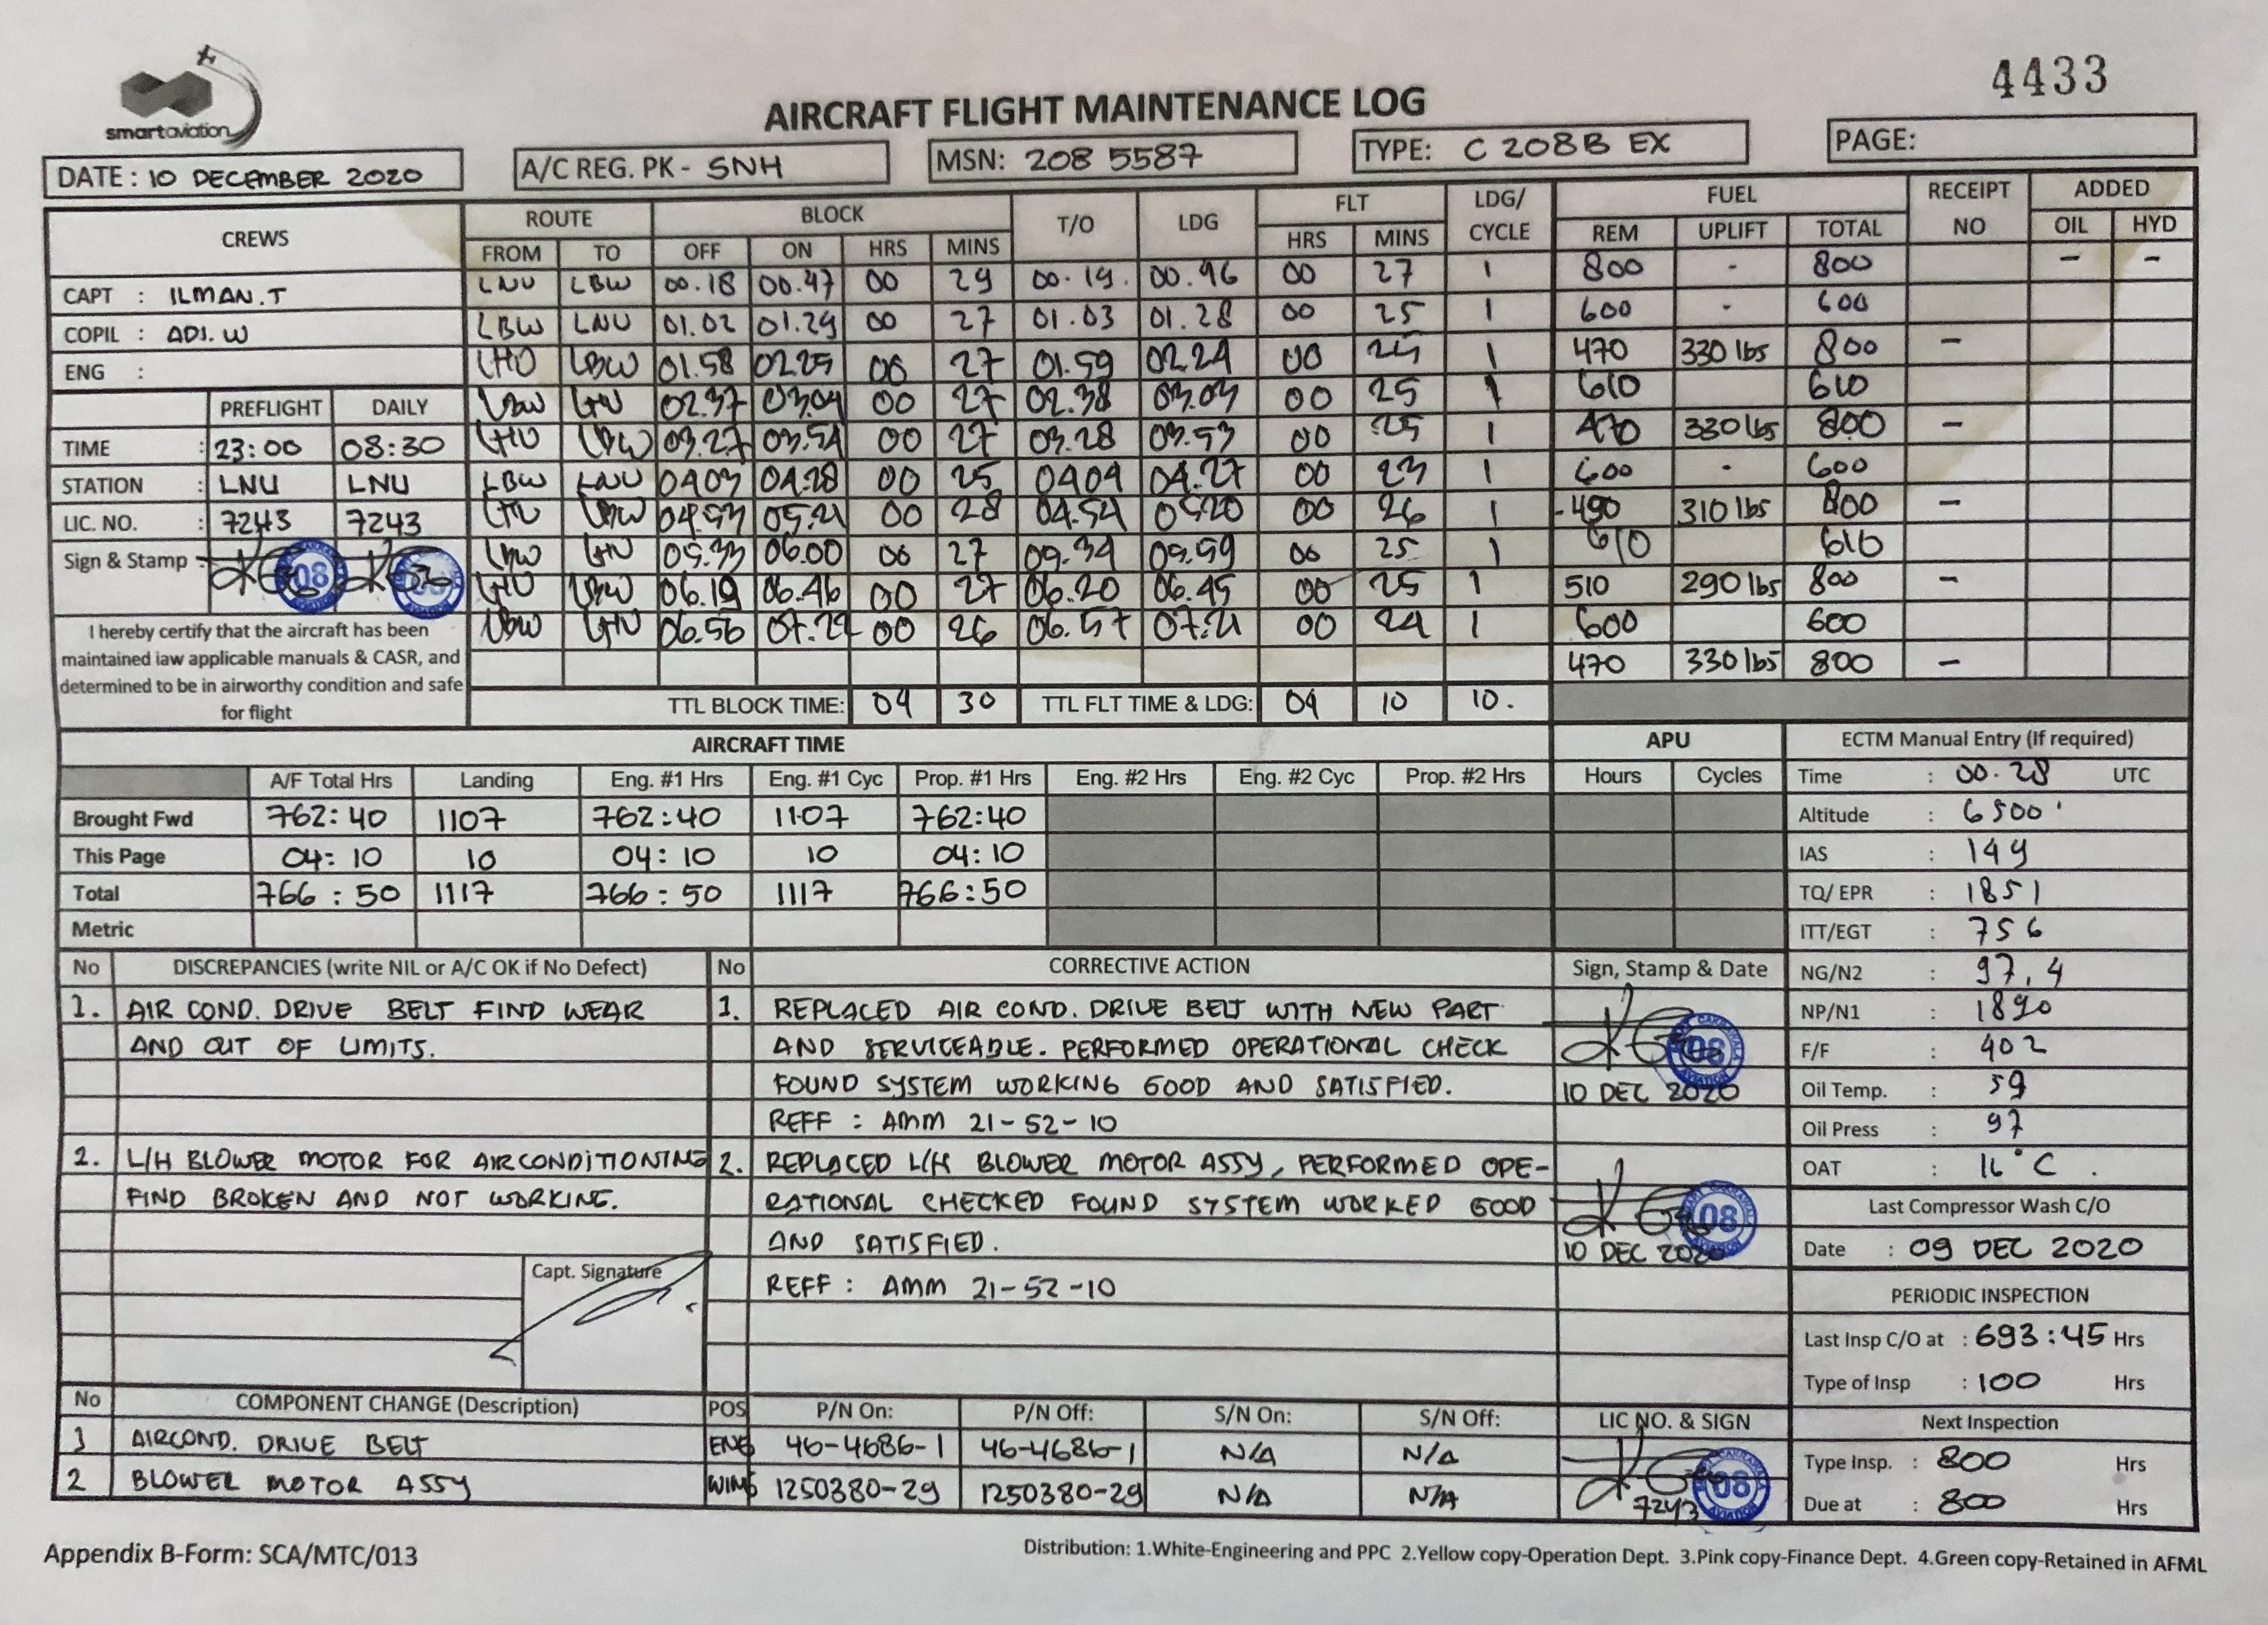 4433
smartaviation
AIRCRAFT FLIGHT MAINTENANCE LOG
DATE : 10 DECEMBER 2020
A/C REG. PK - SNH
MSN: 208 5587
TYPE: C 208B EX
PAGE:
CREWS ROUTE BLOCK T/O LDG FLT LDG/ CYCLE FUEL RECEIPT NO ADDED
FROM TO OFF ON HRS MINS HRS MINS REM UPLIFT TOTAL OIL HYD
CAPT : ILMAN.T
COPIL : ADI.W
ENG :
LNU LBW 00.18 00.47 00 29 00.19. 00.46 00 27 1 800 - 800 - -
LBW LNU 01.02 01.29 00 27 01.03 01.28 00 25 1 600 - 600
LNU LBW 01.58 02.25 00 27 01.59 02.24 00 25 1 470 330 lbs 800 -
LBW LNU 02.37 03.04 00 27 02.38 03.03 00 25 1 610 610
LNU LBW 03.27 03.54 00 27 03.28 03.53 00 25 1 470 330 lbs 800 -
LBW LNU 0403 04.28 00 25 0404 04.27 00 23 1 600 - 600
LNU LBW 04.53 05.21 00 28 04.54 0520 00 26 1 490 310 lbs 800 -
LBW LNU 05.33 06.00 00 27 05.34 05.59 00 25 1 610 610
LNU LBW 06.19 06.46 00 27 06.20 06.45 00 25 1 510 290 lbs 800 -
LBW LNU 06.56 07.22 00 26 06.57 07.21 00 24 1 600 600
470 330 lbs 800 -
TTL BLOCK TIME: 04 30 TTL FLT TIME & LDG: 04 10 10.
PREFLIGHT DAILY
TIME : 23:00 08:30
STATION : LNU LNU
LIC. NO. : 7243 7243
Sign & Stamp 08
I hereby certify that the aircraft has been
maintained iaw applicable manuals & CASR, and
determined to be in airworthy condition and safe
for flight
AIRCRAFT TIME
A/F Total Hrs Landing Eng. #1 Hrs Eng. #1 Cyc Prop. #1 Hrs Eng. #2 Hrs Eng. #2 Cyc Prop. #2 Hrs
Brought Fwd 762:40 1107 762:40 1107 762:40
This Page 04:10 10 04:10 10 04:10
Total 766:50 1117 766:50 1117 766:50
Metric
APU
Hours Cycles
ECTM Manual Entry (If required)
Time : 00.28 UTC
Altitude : 6500'
IAS : 149
TQ/ EPR : 1851
ITT/EGT : 756
NG/N2 : 97,4
NP/N1 : 1890
F/F : 402
Oil Temp. : 59
Oil Press : 97
OAT : 16°C .
Last Compressor Wash C/O
Date : 09 DEC 2020
PERIODIC INSPECTION
Last Insp C/O at : 693:45 Hrs
Type of Insp : 100 Hrs
Next Inspection
Type Insp. : 800 Hrs
Due at : 800 Hrs
No DISCREPANCIES (write NIL or A/C OK if No Defect)
1. AIR COND. DRIVE BELT FIND WEAR
AND OUT OF LIMITS.
2. L/H BLOWER MOTOR FOR AIRCONDITIONING
FIND BROKEN AND NOT WORKING.
Capt. Signature
No CORRECTIVE ACTION Sign, Stamp & Date
1. REPLACED AIR COND. DRIVE BELT WITH NEW PART
AND SERVICEABLE. PERFORMED OPERATIONAL CHECK
FOUND SYSTEM WORKING GOOD AND SATISFIED.
REFF : AMM 21-52-10
08
10 DEC 2020
2. REPLACED L/H BLOWER MOTOR ASSY, PERFORMED OPE-
RATIONAL CHECKED FOUND SYSTEM WORKED GOOD
AND SATISFIED.
REFF : AMM 21-52-10
08
10 DEC 2020
No COMPONENT CHANGE (Description) POS P/N On: P/N Off: S/N On: S/N Off: LIC NO. & SIGN
1 AIRCOND. DRIVE BELT ENG 46-4686-1 46-4686-1 N/A N/A
2 BLOWER MOTOR ASSY WING 1250380-29 1250380-29 N/A N/A
7243 08
Appendix B-Form: SCA/MTC/013
Distribution: 1.White-Engineering and PPC 2.Yellow copy-Operation Dept. 3.Pink copy-Finance Dept. 4.Green copy-Retained in AFML